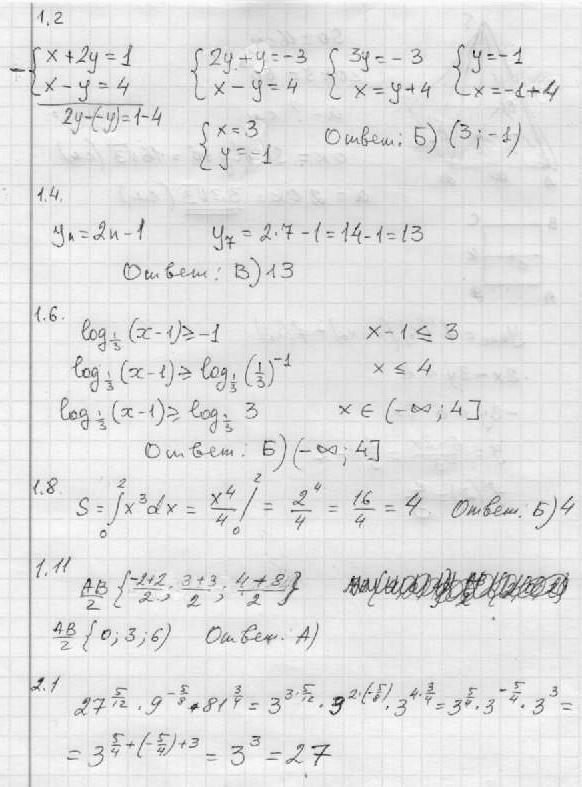 1,2
- { x + 2y = 1 { 2y + y = -3 { 3y = -3 { y = -1
x - y = 4 x - y = 4 x = y + 4 x = -1 + 4
2y-(-y)=1-4
{ x = 3 Ответ: Б) (3; -1)
y = -1
1.4.
yₙ = 2n - 1 y₇ = 2·7 - 1 = 14 - 1 = 13
Ответ: В) 13
1.6.
log_{1/3} (x-1) ≥ -1 x - 1 ≤ 3
log_{1/3} (x-1) ≥ log_{1/3} (1/3)^{-1} x ≤ 4
log_{1/3} (x-1) ≥ log_{1/3} 3 x ∈ (-∞; 4]
Ответ: Б) (-∞; 4]
1.8. S = ∫₀² x³dx = x⁴/4 |₀² = 2⁴/4 = 16/4 = 4 Ответ: Б) 4
1.11 AB/2 { (-2+2)/2 ; (3+3)/2 ; (4+8)/2 }
AB/2 { 0; 3; 6) Ответ: А)
2.1 27^{5/12} · 9^{-5/8} · 81^{3/4} = 3^{3·5/12} · 3^{2·(-5/8)} · 3^{4·3/4} = 3^{5/4} · 3^{-5/4} · 3³ =
= 3^{5/4+(-5/4)+3} = 3³ = 27